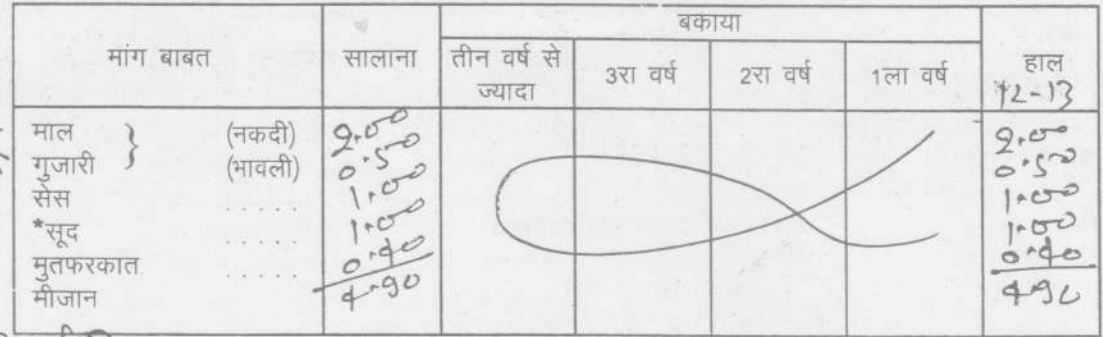 मांग बाबत सालाना बकाया हाल
तीन वर्ष से ज्यादा 3रा वर्ष 2रा वर्ष 1ला वर्ष 12-13
माल } (नकदी) 2.00 2.00
गुजारी (भावली) 0.50 0.50
सेस ..... 1.00 1.00
*सूद ..... 1.00 1.00
मुतफरकात ..... 0.40 0.40
मीजान 4.90 4.90